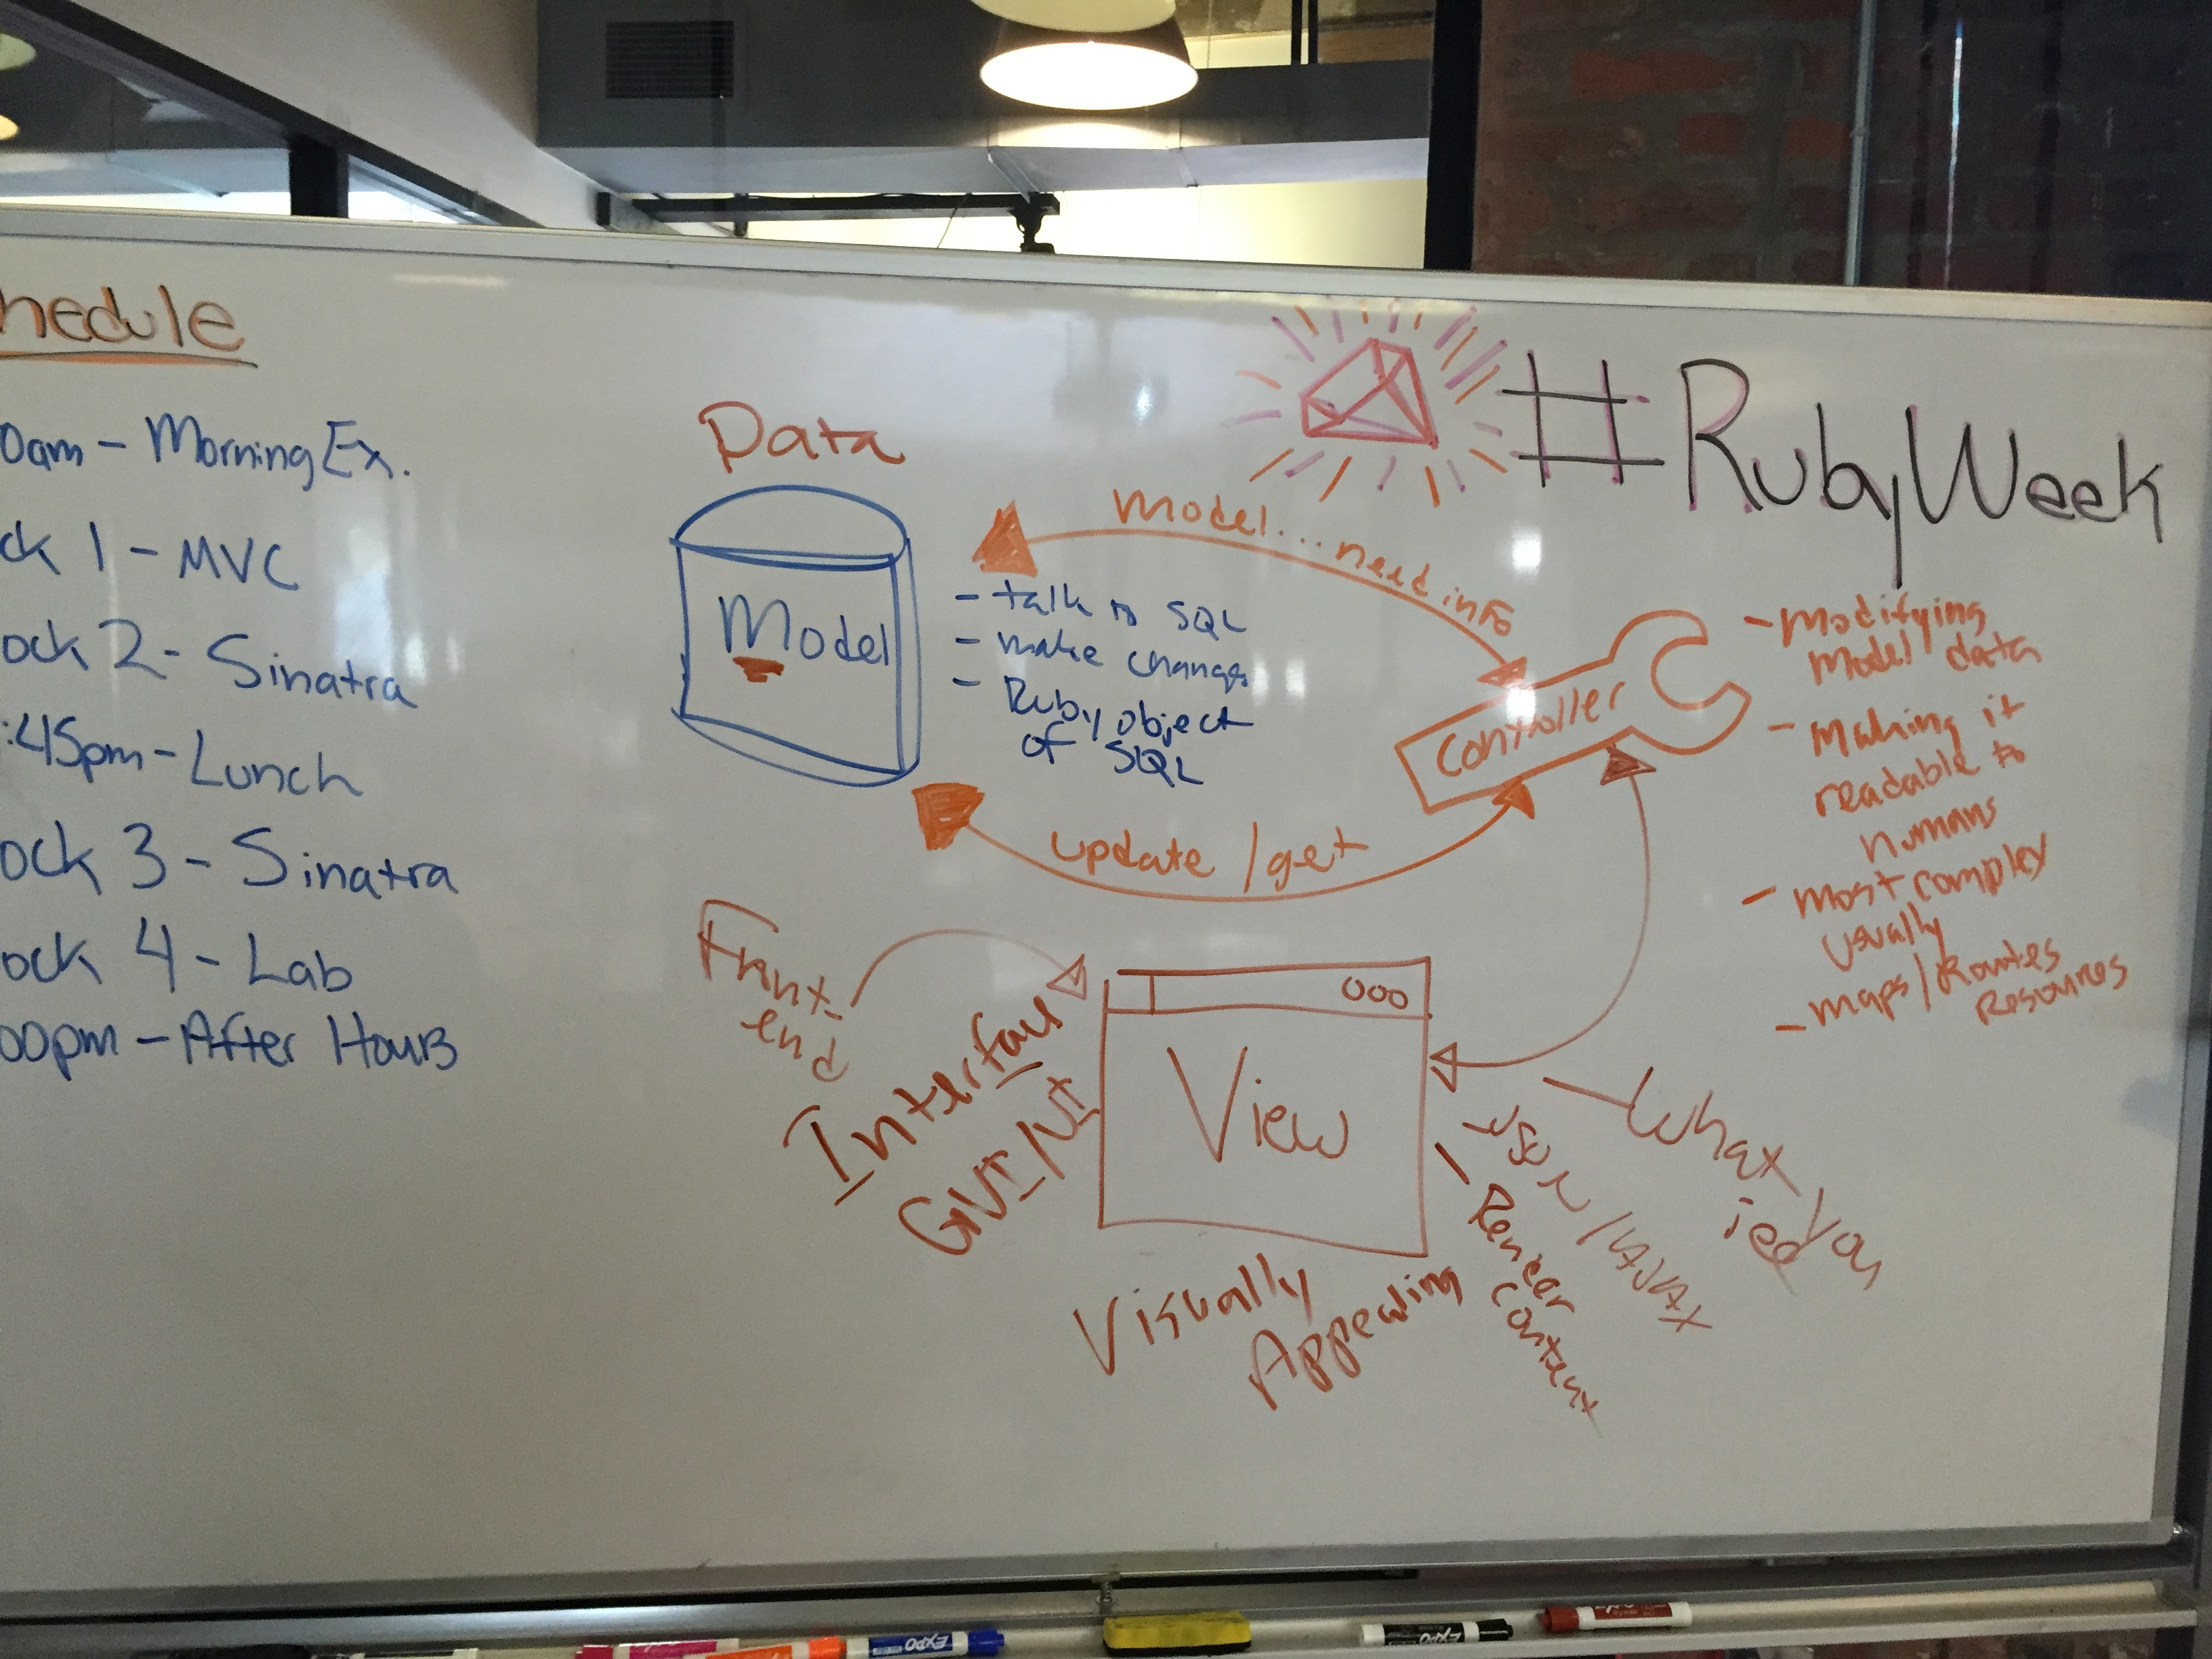 hedule
0am - Morning Ex.
ck 1 - MVC
ock 2 - Sinatra
:45pm - Lunch
ock 3 - Sinatra
ock 4 - Lab
00pm - After Hours
#RubyWeek
Data
Model
- talk to SQL
- make changes
- Ruby object
of SQL
Model... need info
update / get
Controller
- Modifying
Model data
- Making it
readable to
humans
- most complex
usually
- maps / Routes
Resources
Front-
end
Interface
GUI / UI
View
Visually
Appealing
- JSON / AJAX
- Render
Content
- What you
EXPO
EXPO